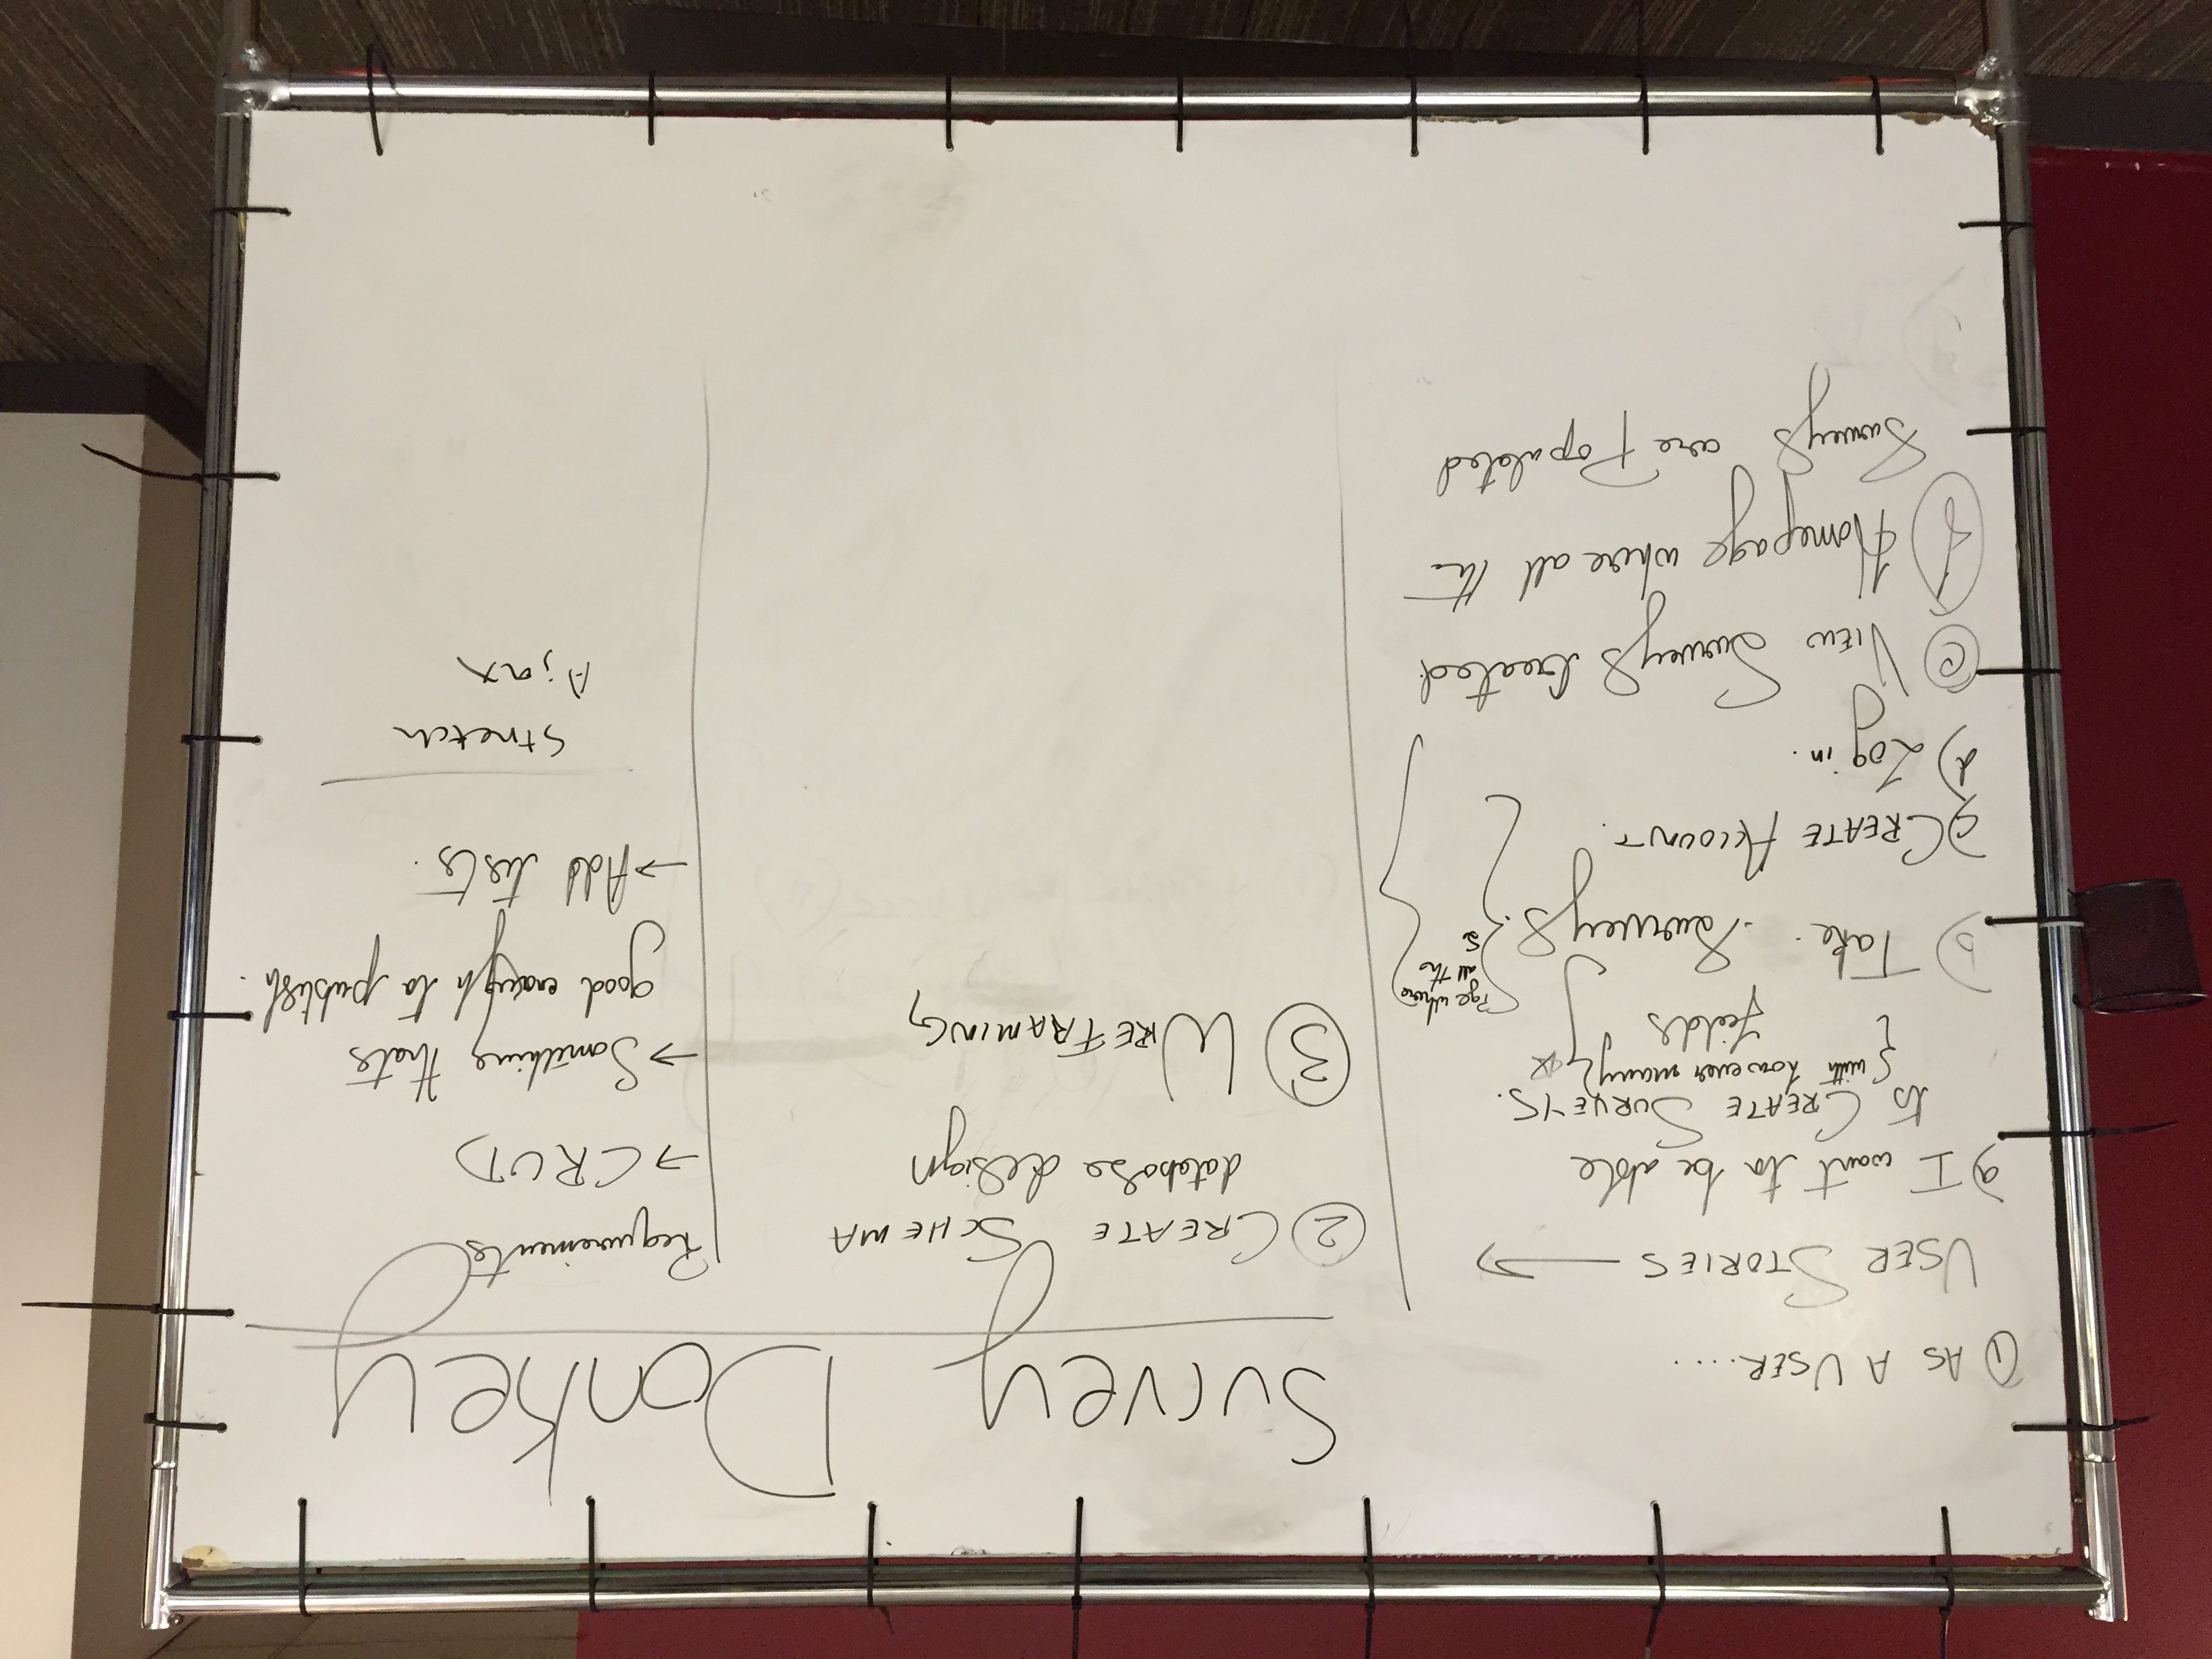 Survey Donkey
① AS A USER....
USER STORIES →
a) I want to be able
to CREATE SURVEYS.
{with however many}
fields
b) Take Surveys.
where
all the
S
c) CREATE ACCOUNT.
d) Log in.
ⓔ VIEW Surveys Created
ⓕ Homepage where all the
Surveys are Populated
② CREATE SCHEMA
database design
③ WIREFRAMING
Requirements
→ CRUD
→ Something thats
good enough to publish.
→ Add tests.
Stretch
Ajax